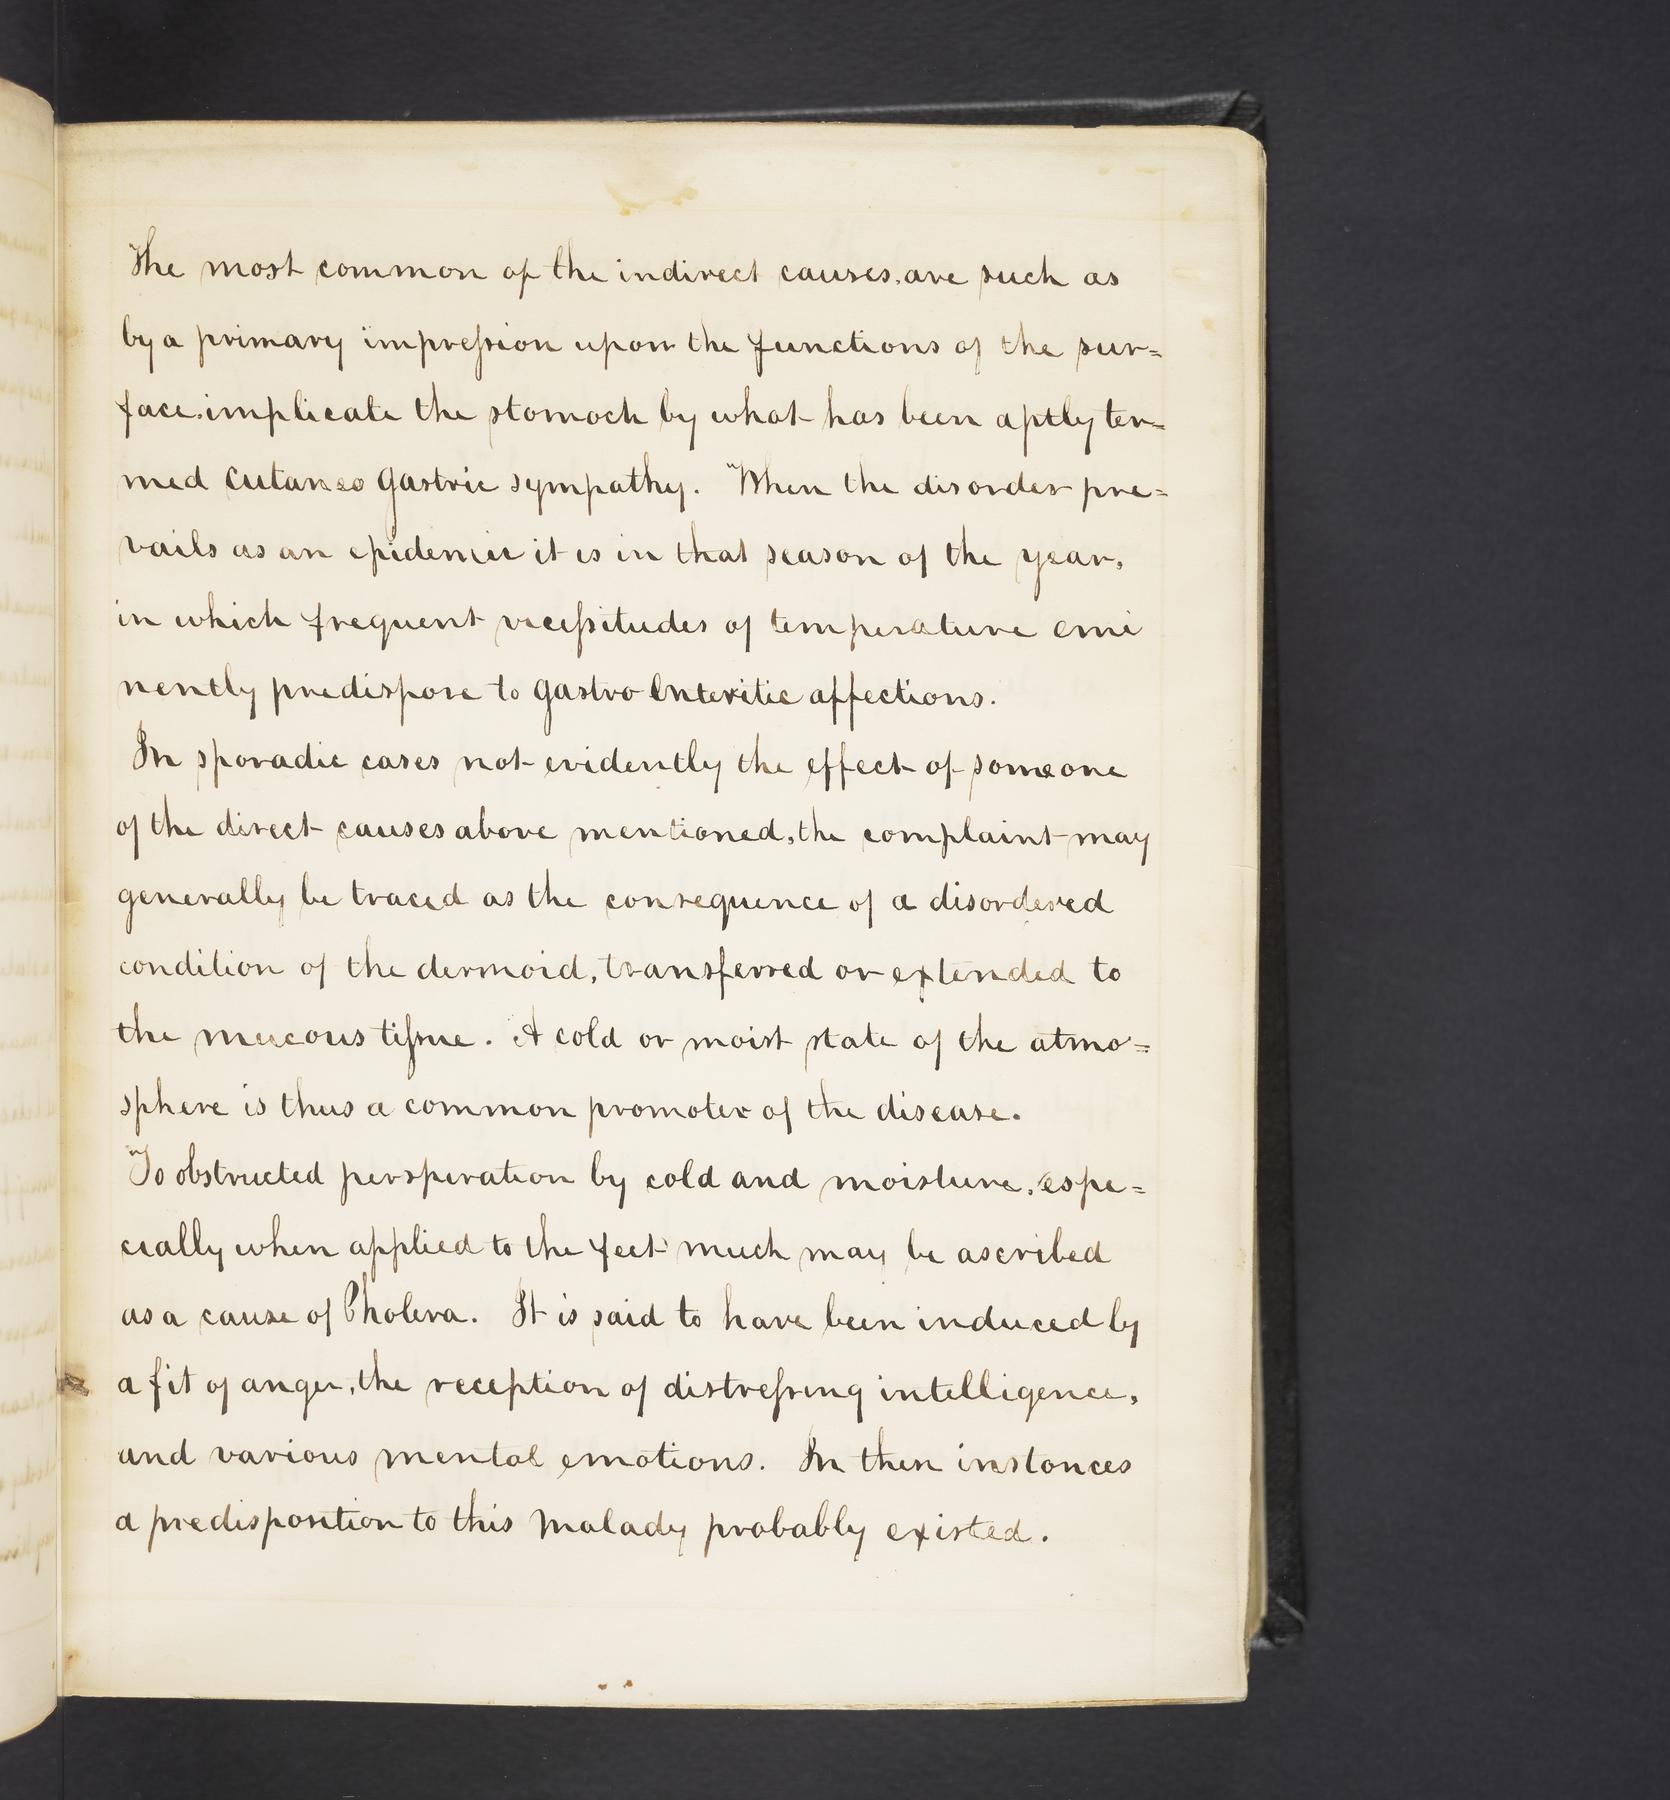 The most common of the indirect causes, are such as
by a primary impression upon the functions of the sur=
face, implicate the stomach by what has been aptly ter=
med cutaneo gastric sympathy. When the disorder pre=
vails as an epidemic it is in that season of the year,
in which frequent vicissitudes of temperature emi
nently predispose to gastro enteritic affections.
In sporadic cases not evidently the effect of some one
of the direct causes above mentioned, the complaint may
generally be traced as the consequence of a disordered
condition of the dermoid, transferred or extended to
the mucous tissue. A cold or moist state of the atmo=
sphere is thus a common promoter of the disease.
To obstructed perspiration by cold and moisture, espe=
cially when applied to the feet much may be ascribed
as a cause of Cholera. It is said to have been induced by
a fit of anger, the reception of distressing intelligence,
and various mental emotions. In then instances
a predisposition to this malady probably existed.